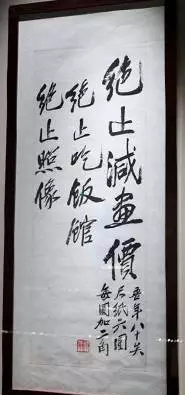 絶止減畫價
絶止吃飯館
絶止照像
吾年八十矣
尺紙六圓
每圓加二角